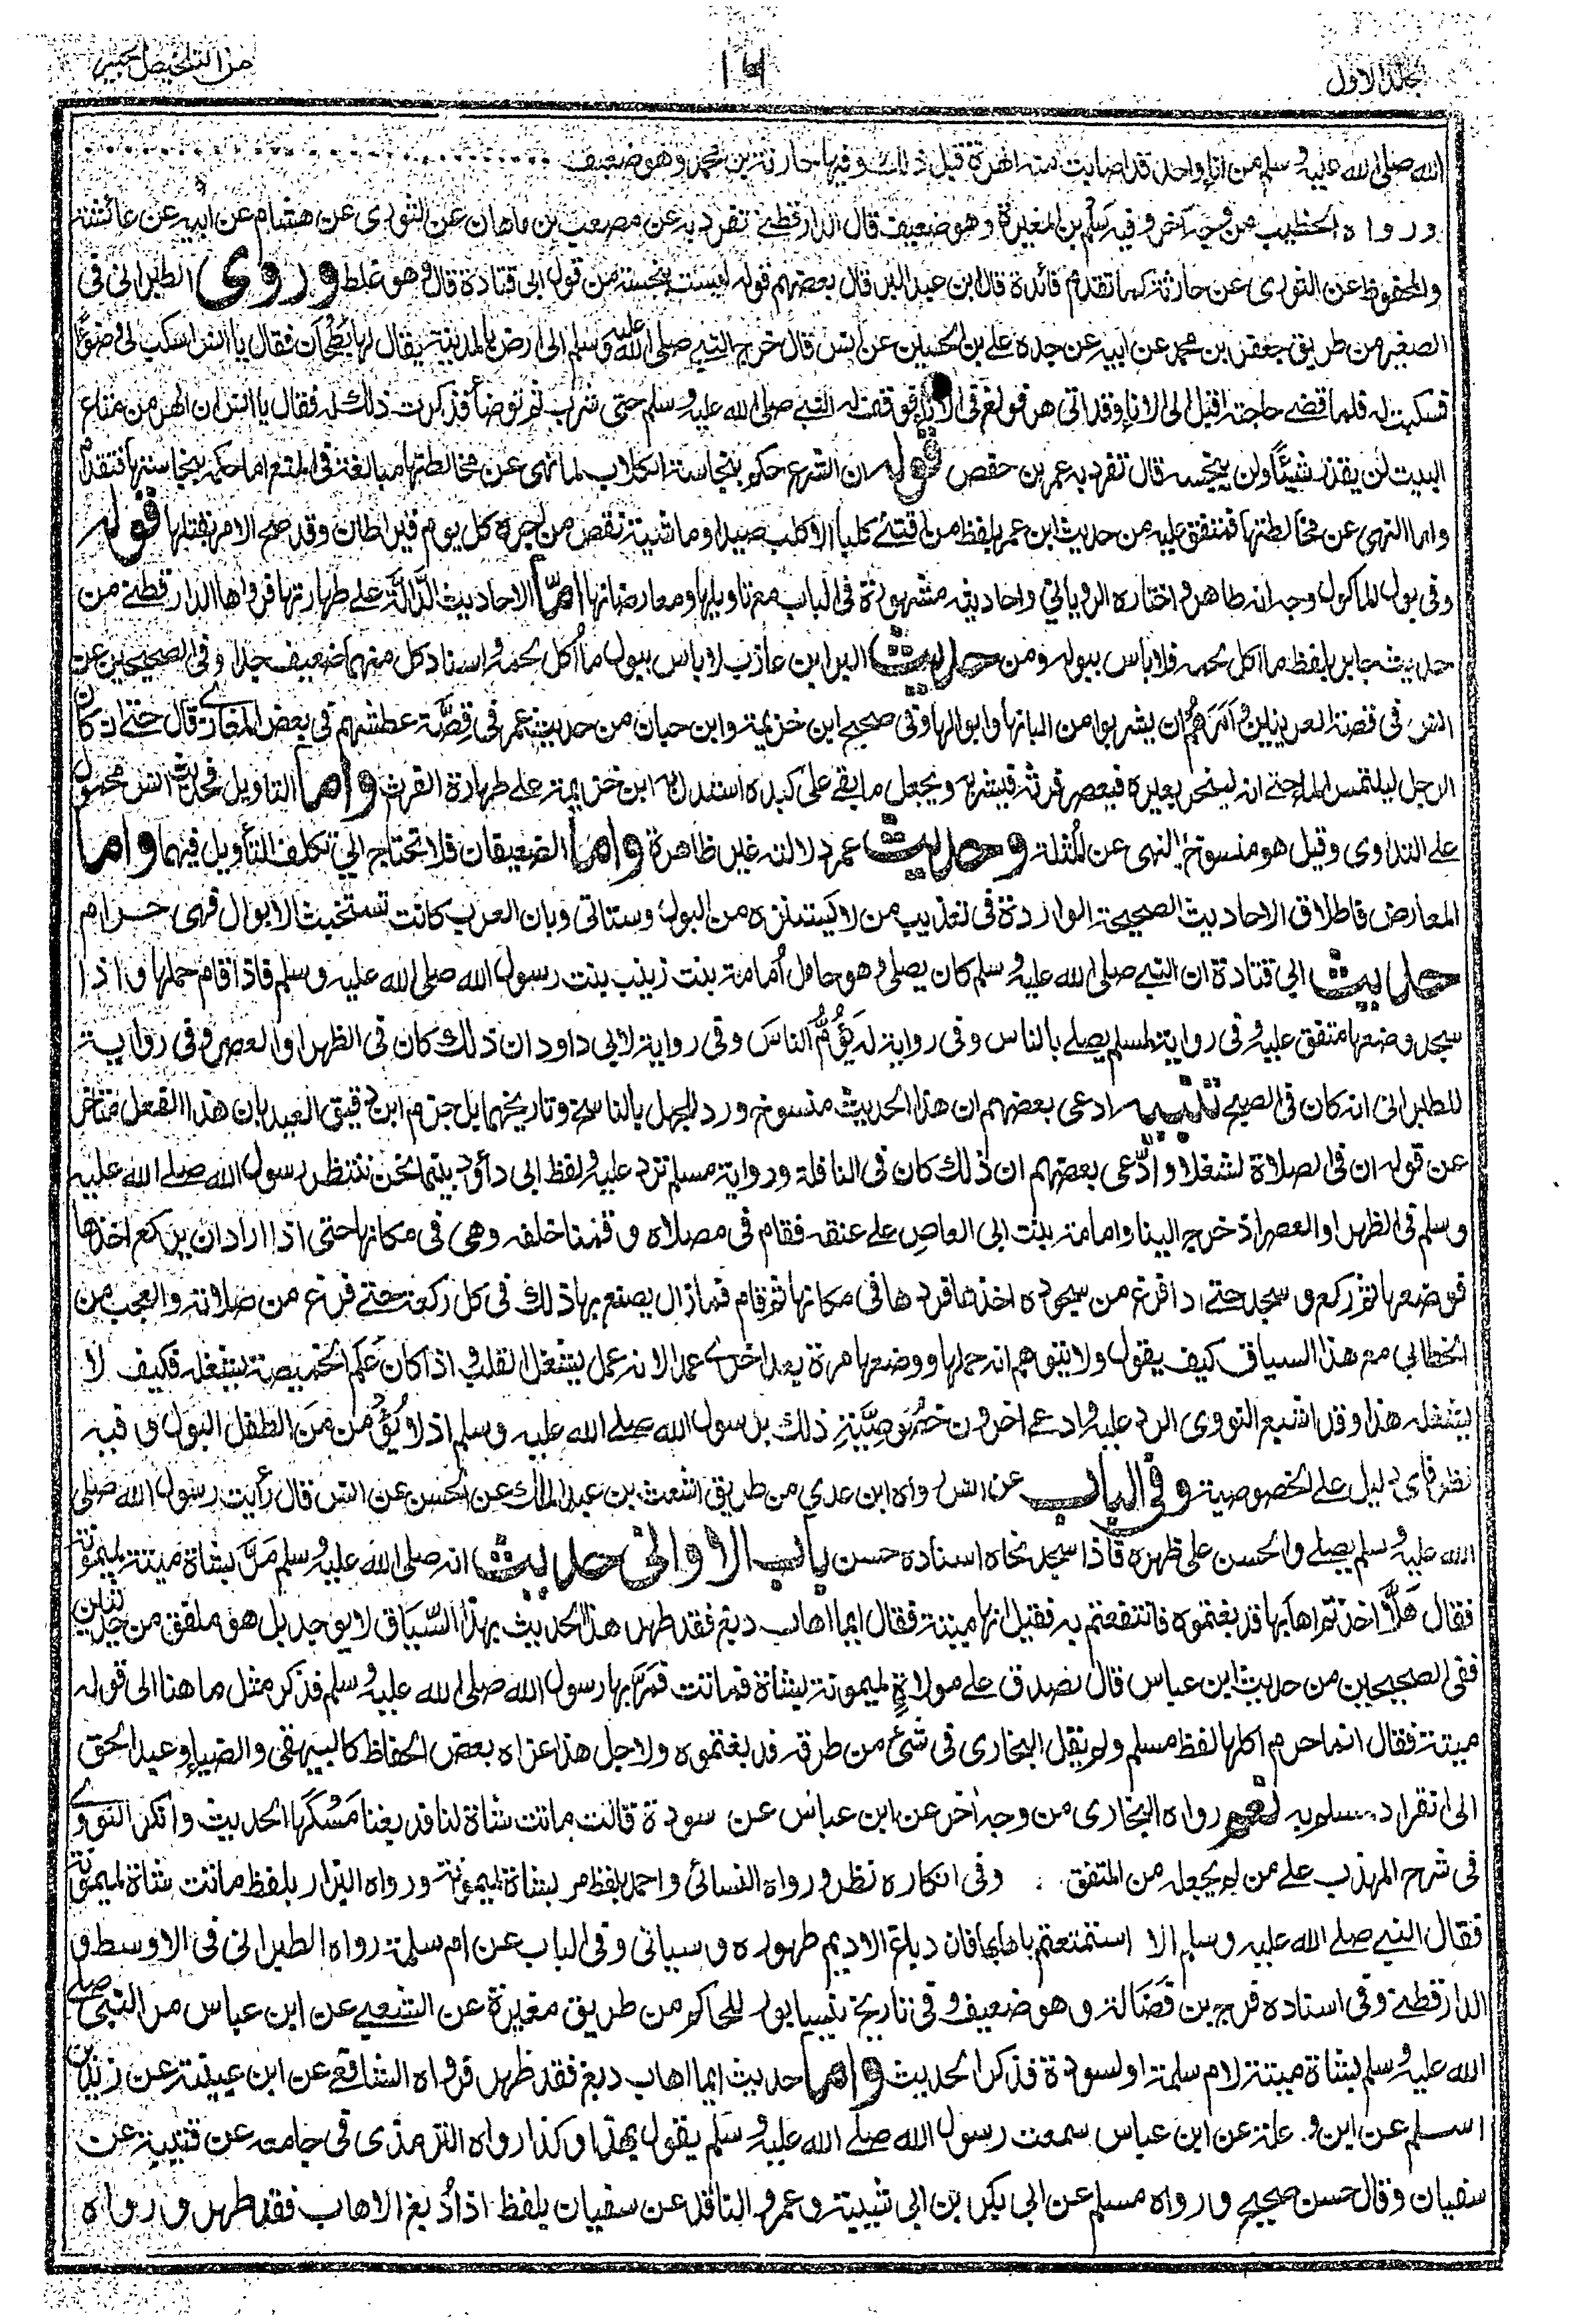 جلد الاول
١٦
من التلخيص الحبير
الله صلى الله عليه وسلم من اناء واحد قد اصابت منه الهرة قبل ذلك وفيها حارثة بن محمد وهو ضعيف
ورواه الخطيب من وجه آخر وفيه سلم بن المغيرة وهو ضعيف قال الدارقطني تفرد به عن مصعب بن ماهان عن الثوري عن هشام عن ابيه عن عائشة
والمحفوظ عن الثوري عن حارثة كما تقدم فائدة قال ابن عبد البر قال بعضهم قوله ليست بنجسة من قول ابى قتادة قال وهو غلط وروى الطبراني في
الصغير من طريق جعفر بن محمد عن ابيه عن جده علي بن الحسين عن انس قال خرج النبي صلى الله عليه وسلم الى ارض بالمدينة يقال لها بطحان فقال يا انس اسكب لى وضوءًا
فسكبت له فلما قضى حاجته اقبل الى الاناء وقد اتى هر فولغ في الاناء فوقف له النبي صلى الله عليه وسلم حتى شرب ثم توضأ فذكرت ذلك له فقال يا انس ان الهر من متاع
البيت لن يقذر شيئًا ولن ينجسه قال تفرد به عمر بن حفص قوله ان الشرع حكم بنجاسة الكلاب لما نهى عن مخالطتها مبالغة في المنع اما حكمه بنجاستها فتقدم
واما النهى عن مخالطتها فمتفق عليه من حديث ابن عمر بلفظ من اقتنى كلبا الا كلب صيد او ماشية نقص من اجره كل يوم قيراطان وقد صح الامر بقتلها قوله
وفي بول الماكول وجه انه طاهر واختاره الروياني واحاديثه مشهورة في الباب مع تاويلها ومعارضاتها امّا الاحاديث الدَّالَّة على طهارتها فرواها الدارقطني من
حديث جابر بلفظ ما اكل لحمه فلا باس ببوله ومن حديث البراء بن عازب لا باس ببول ما أكل لحمه واسناد كل منهما ضعيف جدا وفي الصحيحين عن
انس في قصة العرنيين وأمرهم ان يشربوا من البانها وابوالها وفي صحيح ابن خزيمة وابن حبان من حديث عمر في قصّة عطشهم في بعض المغازي قال حتى ان كان
الرجل ليلتمس الماء حتى انه لينحر بعيره فيعصر فرثه فيشربه ويجعل ما بقي على كبده استدل به ابن خزيمة على طهارة الفرث واما التاويل فحديث انس محمول
على التداوى وقيل هو منسوخ بالنهى عن المُثلة وحديث عمر دلالته غير ظاهرة واما الضعيفان فلا تحتاج الى تكلف التأويل فيهما واما
المعارض فاطلاق الاحاديث الصحيحة الواردة في تعذيب من لا يستنزه من البول وستاتى وبان العرب كانت تستخبث الابوال فهى حرام
حديث ابى قتادة ان النبي صلى الله عليه وسلم كان يصلى وهو حامل أمامة بنت زينب بنت رسول الله صلى الله عليه وسلم فاذا قام حملها واذا
سجد وضعها متفق عليه وفي رواية لمسلم يصلي بالناس وفي رواية له يَؤُمُّ الناسَ وفي رواية لابى داود ان ذلك كان في الظهر او العصر وفي رواية
للطبرانى انه كان في الصبح تنبيه ادعى بعضهم ان هذا الحديث منسوخ ورد للجهل بالناسخ وتاريخهما بل جزم ابن دقيق العيد بان هذا الفعل متاخر
عن قوله ان في الصلاة لشغلا وادّعى بعضهم ان ذلك كان في النافلة ورواية مسلم ترد عليه ولفظ ابى داؤد بينما نحن ننتظر رسول الله صلى الله عليه
وسلم في الظهر او العصر اذ خرج الينا وامامة بنت ابى العاص على عنقه فقام في مصلاه وقمنا خلفه وهى في مكانها حتى اذا اراد ان يركع اخذها
فوضعها ثم ركع وسجد حتى اذا فرغ من سجوده اخذها فردها في مكانها ثم قام فمازال يصنع بها ذلك في كل ركعة حتى فرغ من صلاته والعجب من
الخطابى مع هذا السياق كيف يقول ولا يتوهم انه حملها ووضعها مرة بعد اخرى عمدا لانه عمل يشغل القلب واذا كان عَلَم الخميصة يشغله فكيف لا
يشغله هذا وقد اشبع النووى الرد عليه وادعى اخرون خصوصيَّة ذلك برسول الله صلى الله عليه وسلم اذ لا يُؤمن من الطفل البول وفيه
نظر فاي دليل على الخصوصية وفي الباب عن انس رواه ابن عدي من طريق اشعث بن عبد الملك عن الحسن عن انس قال رأيت رسول الله صلى
الله عليه وسلم يصلي والحسن على ظهره فاذا سجد نحاه اسناده حسن باب الاوانى حديث انه صلى الله عليه وسلم مَرَّ بشاة ميتة لميمونة
فقال هَلاَّ اخذتم اهابها فدبغتموه فانتفعتم به فقيل انها ميتة فقال ايما اهاب دبغ فقد طهر هذا الحديث بهذا السّيَاق لا يوجد بل هو ملفق من حديثين
ففى الصحيحين من حديث ابن عباس قال تصدق على مولاةٍ لميمونة بشاة فماتت فمَرَّ بها رسول الله صلى الله عليه وسلم فذكر مثل ما هنا الى قوله
ميتة فقال انما حرم اكلها لفظ مسلم ولم يقل البخارى في شئ من طرقه فدبغتموه ولاجل هذا عزاه بعض الحفاظ كالبيهقى والضياء وعبد الحق
الى انفراد مسلم به نعم رواه البخارى من وجه آخر عن ابن عباس عن سودة قالت ماتت شاة لنا فدبغنا مَسْكَها الحديث وانكر النووي
في شرح المهذب على من لم يجعله من المتفق وفى انكاره نظر ورواه النسائى واحمد بلفظ مر بشاة لميمونة ورواه البزار بلفظ ماتت شاة لميمونة
فقال النبي صلى الله عليه وسلم الا استمتعتم باهابها فان دباغ الاديم طهوره وسياتى وفي الباب عن ام سلمة رواه الطبرانى في الاوسط و
الدارقطني وفي اسناده فرج بن فَضَالة وهو ضعيف وفى تاريخ نيسابور للحاكم من طريق مغيرة عن الشعبي عن ابن عباس مر النبي صلى
الله عليه وسلم بشاة ميتة لام سلمة او لسودة فذكر الحديث واما حديث ايما اهاب دبغ فقد طهر فرواه الشافعي عن ابن عيينة عن زيد بن
اسلم عن ابن وعلة عن ابن عباس سمعت رسول الله صلى الله عليه وسلم يقول بهذا وكذا رواه الترمذى في جامعه عن قتيبة عن
سفيان وقال حسن صحيح ورواه مسلم عن ابى بكر بن ابى شيبة وعمرو الناقد عن سفيان بلفظ اذا دُبغ الاهاب فقد طهر ورواه